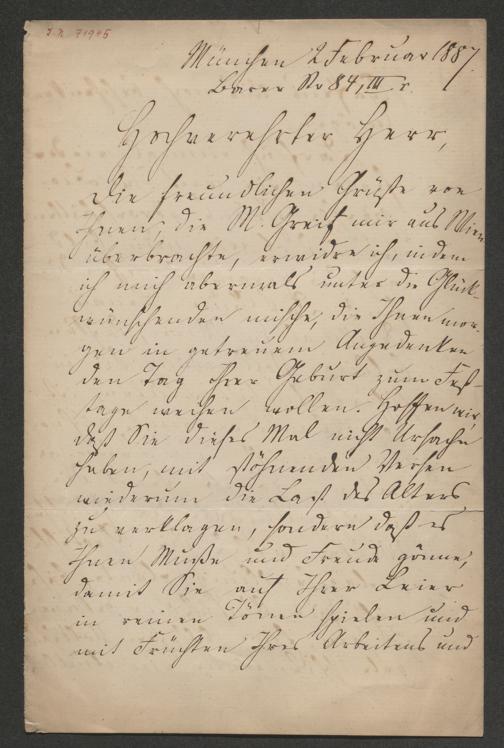 I.N. 71945
München 2 Februar 1887.
Barer Str 84, III r.
Hochverehrter Herr,
Die freundlichen Grüße von
Ihnen, die M. Greif mir aus Wien
überbrachte, erwidre ich, indem
ich mich abermals unter die Glück-
wünschenden mische, die Ihnen mor-
gen in getreuem Angedenken
den Tag Ihrer Geburt zum Fest-
tage weihen wollen. Hoffen wir,
daß Sie dieses Mal nicht Ursache
haben, mit stöhnenden Versen
wiederum die Last des Alters
zu verklagen, sondern daß es
Ihnen Muße und Freude gönne,
damit Sie auf Ihrer Leier
in reinen Tönen spielen und
mit Früchten Ihres Arbeitens und